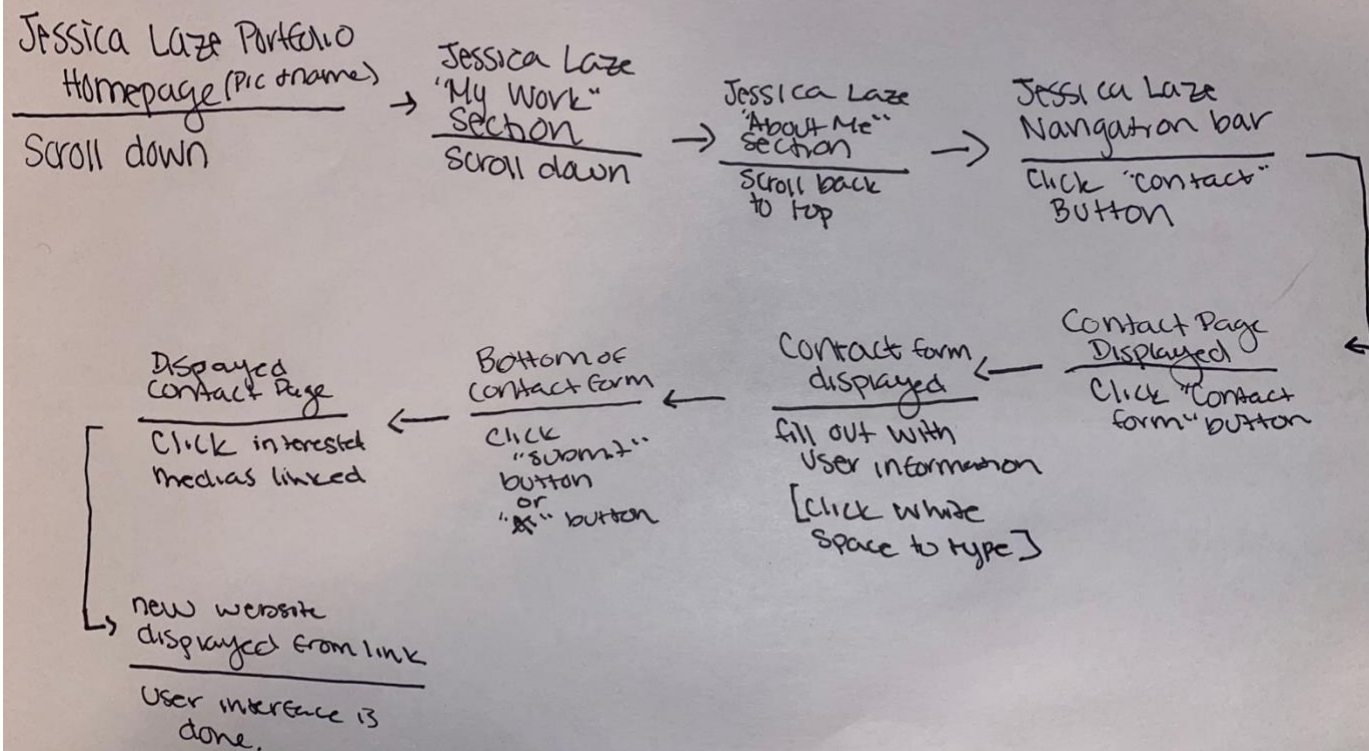 Jessica Laze Portfolio
Homepage (Pic + name)
Scroll down
Jessica Laze
"My Work"
Section
Scroll down
Jessica Laze
"About Me"
Section
Scroll back
to top
Jessica Laze
Navigation bar
Click "contact"
Button
Contact Page
Displayed
Click "Contact
form" button
Contact form
displayed
fill out with
user information
[Click white
space to type]
Bottom of
contact form
Click
"submit"
button
or
"X" button
Dispayed
Contact Page
Click interested
medias linked
new website
displayed from link
User interface is
done.